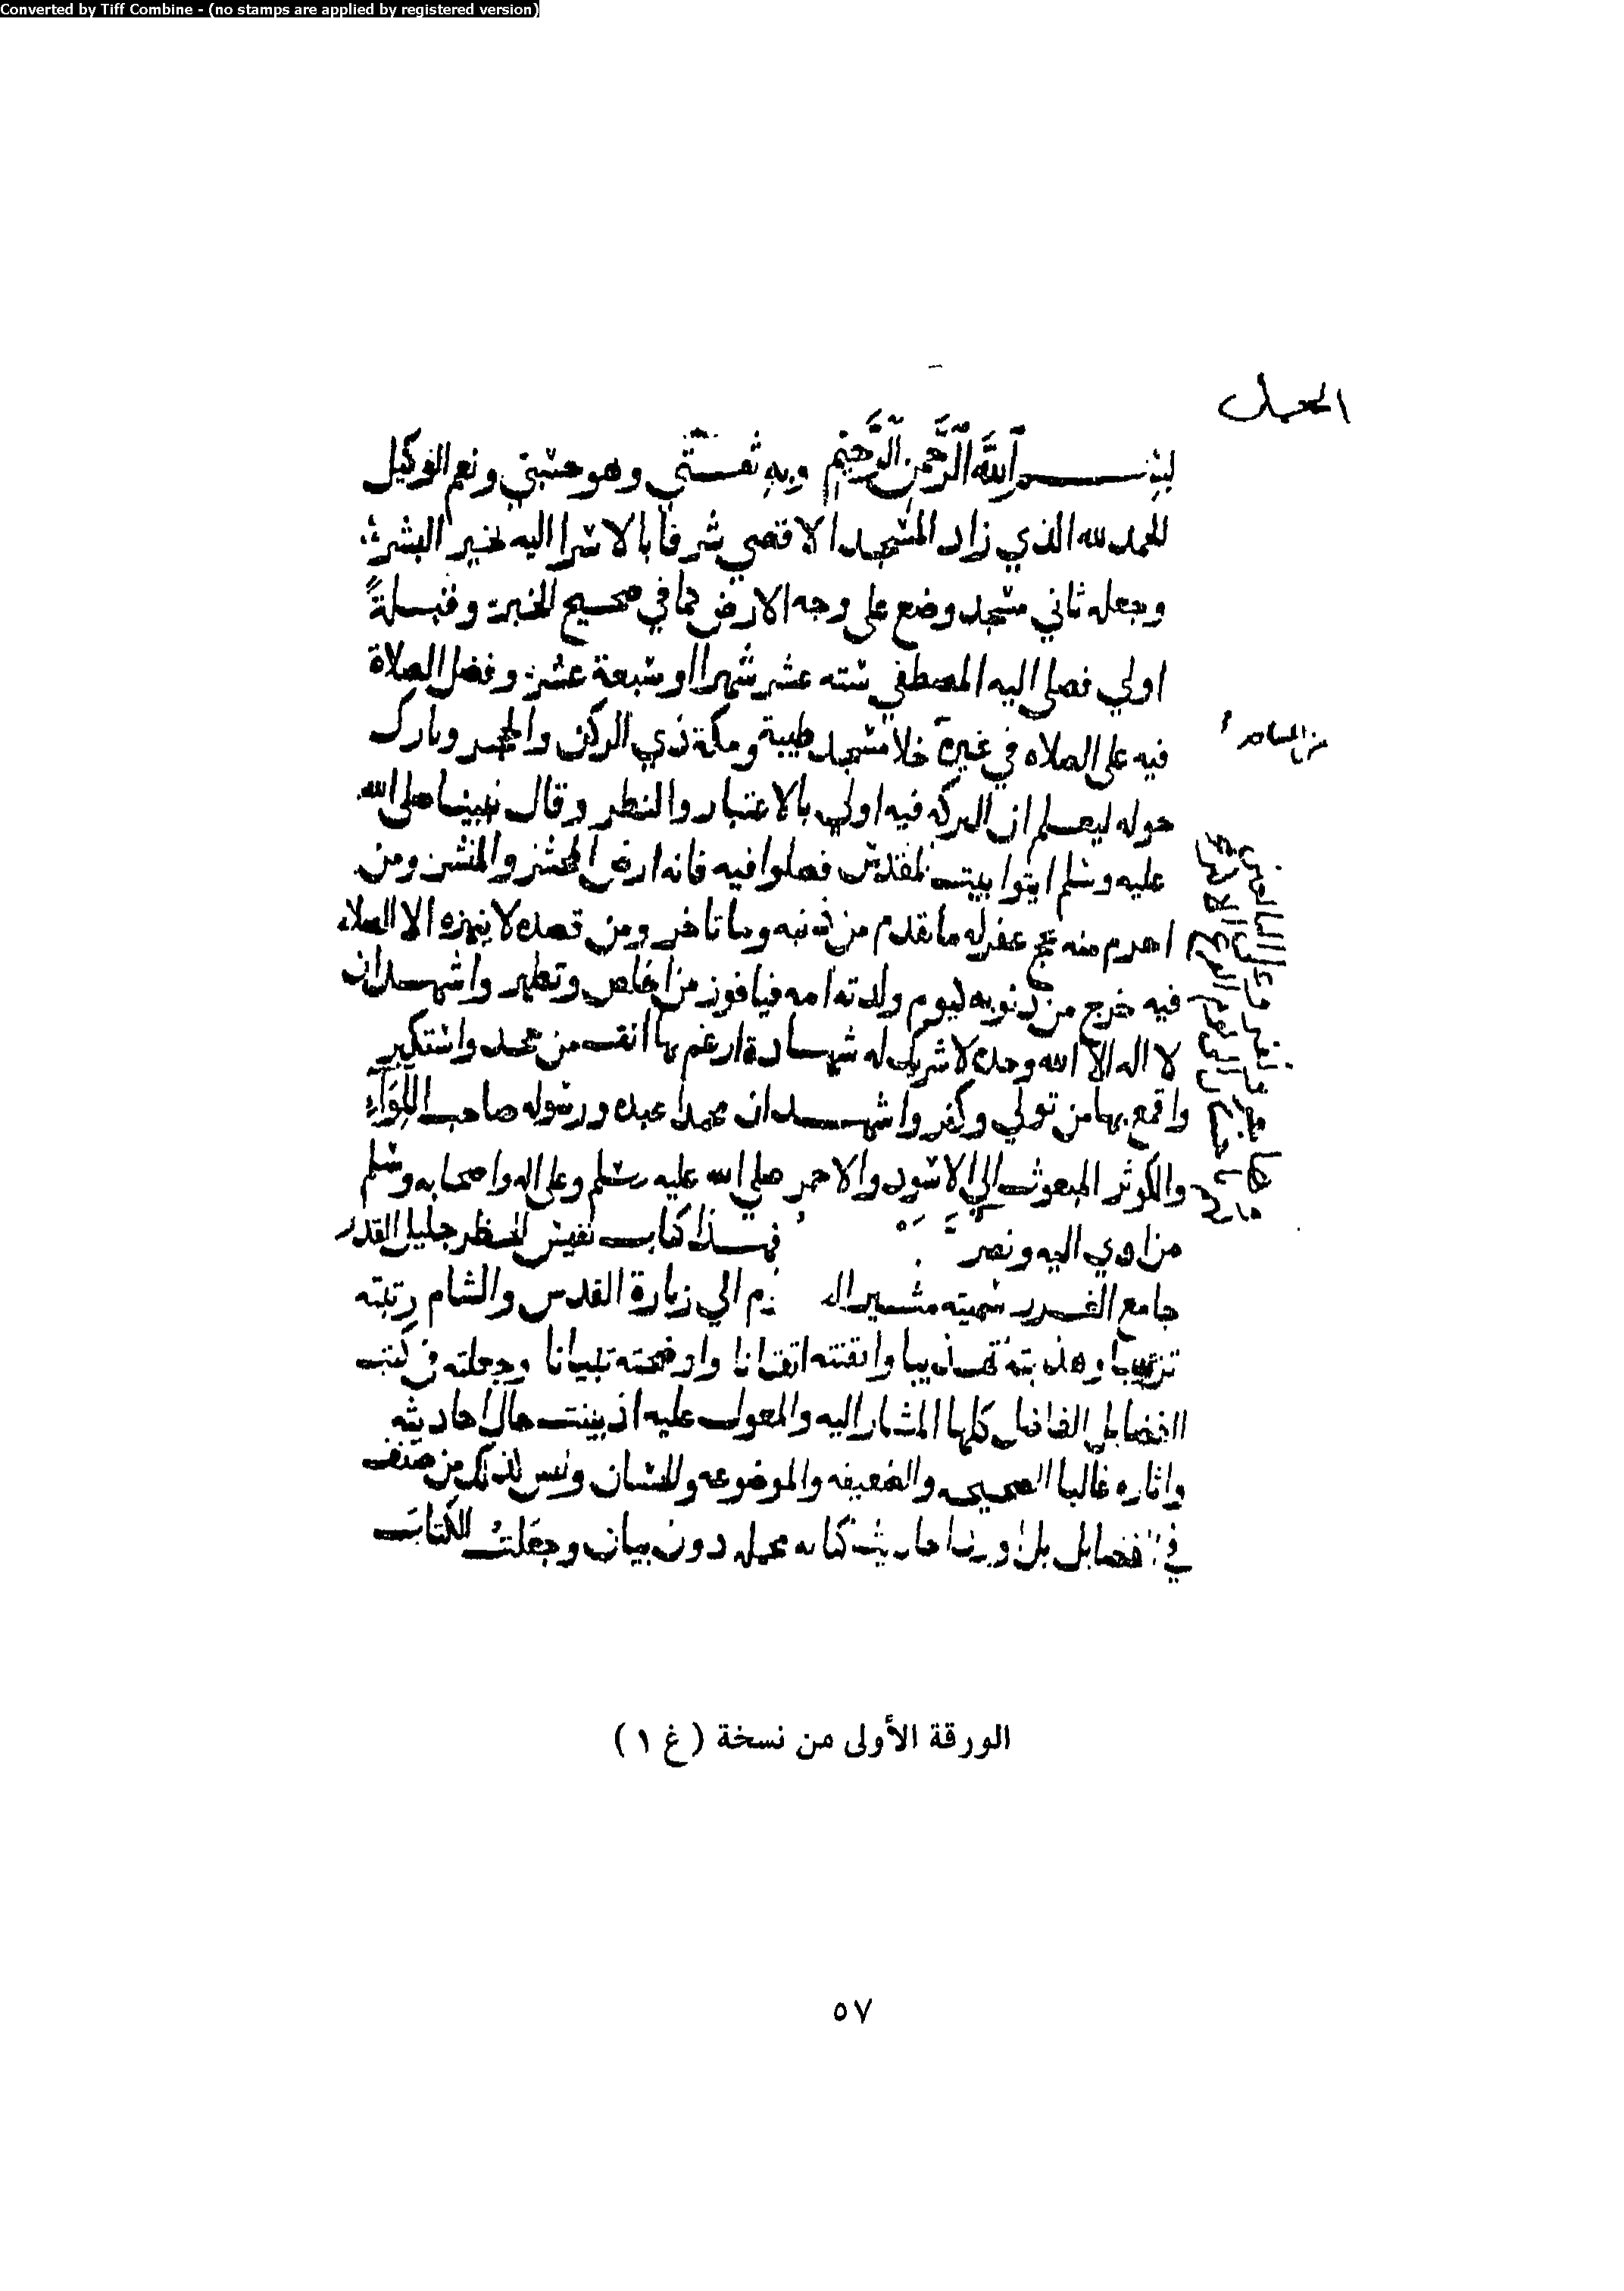 Converted by Tiff Combine - (no stamps are applied by registered version)
بسم الله الرحمن الرحيم وبه ثقتي وهو حسبي ونعم الوكيل
الحمد لله الذي زاد المسجد الاقصي شرفا بالاسرا اليه لخير البشر
وجعله ثاني مسجد وضع على وجه الارض كما في صحيح الخبر وقبلة
اولي فصلى اليه المصطفي سته عشر شهرا او سبعة عشر وفضل الصلاة
فيه على الصلاه في غيره خلا مسجد طيبة ومكة ذي الركن والحجر وبارك
من المساجد
حوله ليعلم ان البركه فيه اولي بالاعتبار والنظر وقال نبينا صلى الله
عليه وسلم ايتوا بيت المقدس فصلوا فيه فانه ارض المحشر والمنشر ومن
احرم منه بحج غفر له ما تقدم من ذنبه وما تاخر ومن قصده لا ينهزه الا الصلاه
فيه خرج من ذنوبه ليوم ولدته امه فيا فوز من اخلص وتطهر واشهد ان
لا اله الا الله وحده لا شريك له شهادة ارغم بها انف من جحد واستكبر
واقمع بها من تولي وكفر واشهد ان محمدا عبده ورسوله صاحب اللواء
والكوثر المبعوث الي الاسود والاحمر صلي الله عليه وسلم وعلى اله واصحابه وسلم
من اوي اليه ونصر فهذا كتاب نفيس الخطر جليل القدر
جامع الغرر سميته مثير ال زم الي زيارة القدس والشام رتبته
ترتيبا وهذبته تهذيبا واتقنته اتقانا واوضحته تبيانا وجعلته في كتب
الفضايل الفاضل كلها المشار اليه والمعول عليه اذ بينت حال احاديثه
واثاره غالبا الصحيحه والضعيفه والموضوعه والحسان وليس كذلك من صنف
في الفضايل بل اورد احاديث كتابه مجمله دون بيان وجعلت الكتاب
الورقة الأولى من نسخة (غ ١)
٥٧